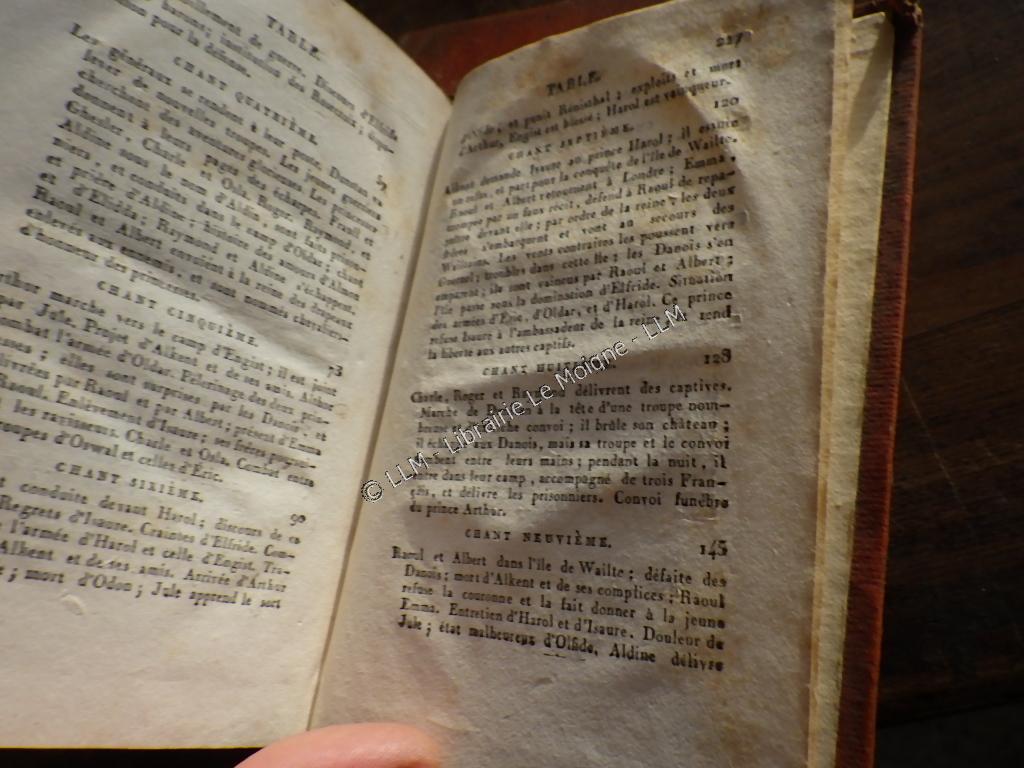 TABLE.
de guerre. Discours d'Elfride
instruction des Rosecroix ; dispo-
pour la défense.
CHANT QUATRIÈME. 57
Les généraux se rendent à leur poste. Dunstan va
lever de nouvelles troupes. Les jeunes guerriers
cherchent des aventures glorieuses. Les princesses
donnent à leurs pages des écharpes. Frasil et
Ghesler, Charle et Osla, Roger, Raymond, et
Aldine sous le nom d'Aldin, sont faits prison-
niers, et conduits dans le camp d'Oldar; chant et
prière d'Aldine; histoire des amours d'Almed
et d'Elisda; Raymond et Aldine s'échappent.
Raoul et Albert envoient à la reine des drapeaux
enlevés aux ennemis, et sont nommés chevaliers
d'honneur des princesses.
CHANT CINQUIÈME. 73
Arthur marche vers le camp d'Engist; il est joint
par Jule. Projet d'Alkent et de ses amis. Arthur
combat l'armée d'Oldar. Pélerinage des deux prin-
cesses; elles sont surprises par les Danois, et
délivrées par Raoul et par Albert; présent d'Emma
Raoul. Enlèvement d'Isaure; les frères poursui-
les ravisseurs. Charle et Osla. Combat entre
troupes d'Orwal et celles d'Éric.
CHANT SIXIÈME. 90
conduite devant Harol; discours de ce
Regrets d'Isaure. Craintes d'Elfride. Com-
l'armée d'Harol et celle d'Engist. Tra-
Alkent et de ses amis. Arrivée d'Arthur
; mort d'Odon; Jule apprend le sort
TABLE. 227
et punit Rénisthal; exploits et mort
d'Arthur, Engist est blessé; Harol est vainqueur.
CHANT SEPTIÈME. 120
Albert demande Isaure au prince Harol; il essuie
un refus, et part pour la conquête de l'île de Wailte.
Raoul et Albert retournent à Londre; Emma,
trompée par un faux récit, defend à Raoul de repa-
raître devant elle; par ordre de la reine, les deux
frères s'embarquent et vont au secours des
Wailtains. Les vents contraires les poussent vers
Gournel; troubles dans cette île; les Danois s'en
emparent; ils sont vaincus par Raoul et Albert;
l'île passe sous la domination d'Elfride. Situation
des armées d'Éric, d'Oldar, et d'Harol. Ce prince
refuse Isaure à l'ambassadeur de la reine, et rend
la liberté aux autres captifs.
CHANT HUITIÈME. 128
Charle, Roger et Raymond délivrent des captives.
Marche de à la tête d'une troupe nom-
breuse et convoi; il brûle son château;
il échappe aux Danois, mais sa troupe et le convoi
tombent entre leurs mains; pendant la nuit, il
entre dans leur camp, accompagné de trois Fran-
çais, et délivre les prisonniers. Convoi funèbre
du prince Arthur.
CHANT NEUVIÈME. 145
Raoul et Albert dans l'île de Wailte; défaite des
Danois; mort d'Alkent et de ses complices; Raoul
refuse la couronne et la fait donner à la jeune
Emma. Entretien d'Harol et d'Isaure. Douleur de
Jule; état malheureux d'Olfide. Aldine délivre
© LLM - Librairie Le Moigne - LLM